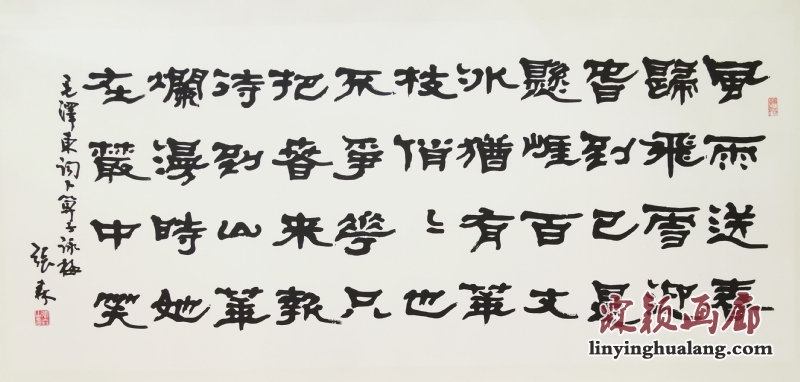 風雨送春
歸飛雪迎
旾到已是
懸崖百丈
冰猶有華
枝俏〻也
不爭花只
把春來報
待到山華
爛漫時她
在叢中笑
毛澤東詞卜算子詠梅
張森
霖颖画廊
linyinghualang.com